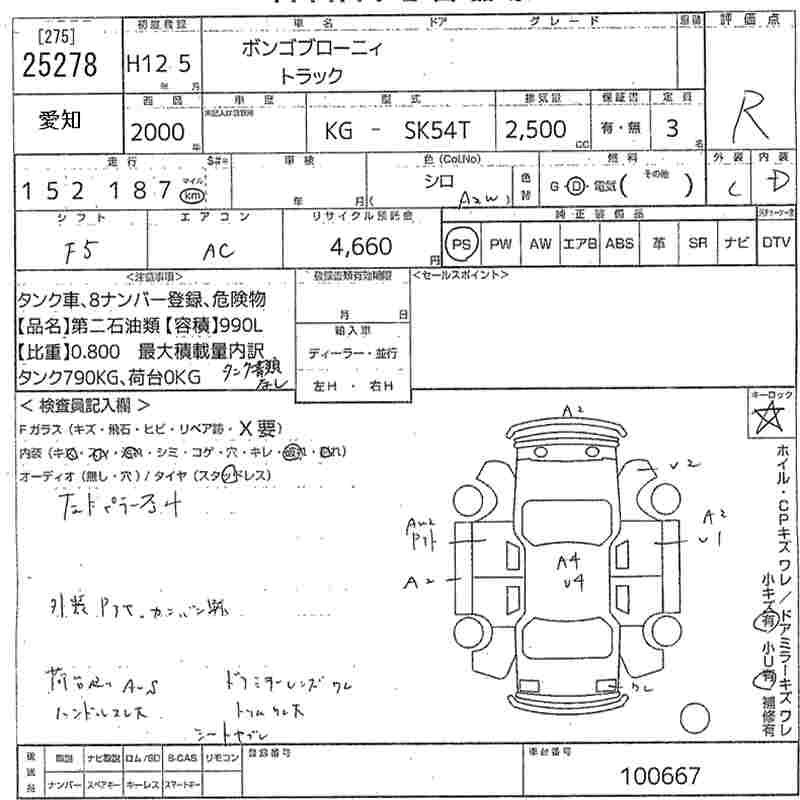 初度登録 車名 ドア グレード 評価点
[275]
25278 H12 5 ボンゴブローニィ
トラック
年 月
R
愛知 車歴 型式 排気量 保証書 定員
2000 年 KG - SK54T 2,500 CC 有・無 3 名
走行 $#= 車検 色(Col.No) 燃料 外装 内装
152 187 マイル km 年 月 シロ A2W 色替 G・D・電気( その他 ) C D
シフト エアコン リサイクル預託金 純正装備品
F5 AC 4,660 円 PS PW AW エアB ABS 革 SR ナビ DTV
<注意事項> 登録書類有効期限 <セールスポイント>
タンク車、8ナンバー登録、危険物
月 日
【品名】第二石油類【容積】990L
輸入車
【比重】0.800 最大積載量内訳
ディーラー・並行
タンク790KG、荷台0KG タンク書類なし
左H ・ 右H
キーロック
< 検査員記入欄 >
Fガラス(キズ・飛石・ヒビ・リペア跡・X要)
オーディオ(無し・穴)/タイヤ(スタッドレス)
A2
U2
A2
U1
AW2
A2
A4
U4
ワレ
外装
ハンドルスレ大
シートヤブレ
ドアミラーレンズワレ
ホイル・CPキズワレ/ドアミラーキズワレ
小キズ有 小U有 補修有
後送品 取説 ナビ取説 ロム/SD B-CAS リモコン 登録番号 車台番号
ナンバー スペアキー キーレス スマートキー 100667